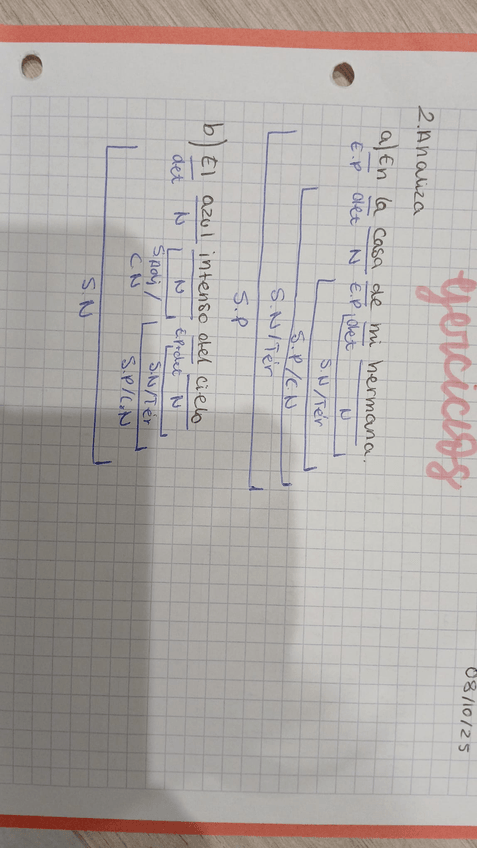 ejercicios
08/10/25
2. Analiza
a) En la casa de mi hermana.
E.P det N E.P det N
S.N/Tér
S.P/CN
S.N/Tér
S.P
b) El azul intenso del cielo
det N N E.P+det N
S.Adj/ CN S.N/Tér
S.P/C.N
S.N